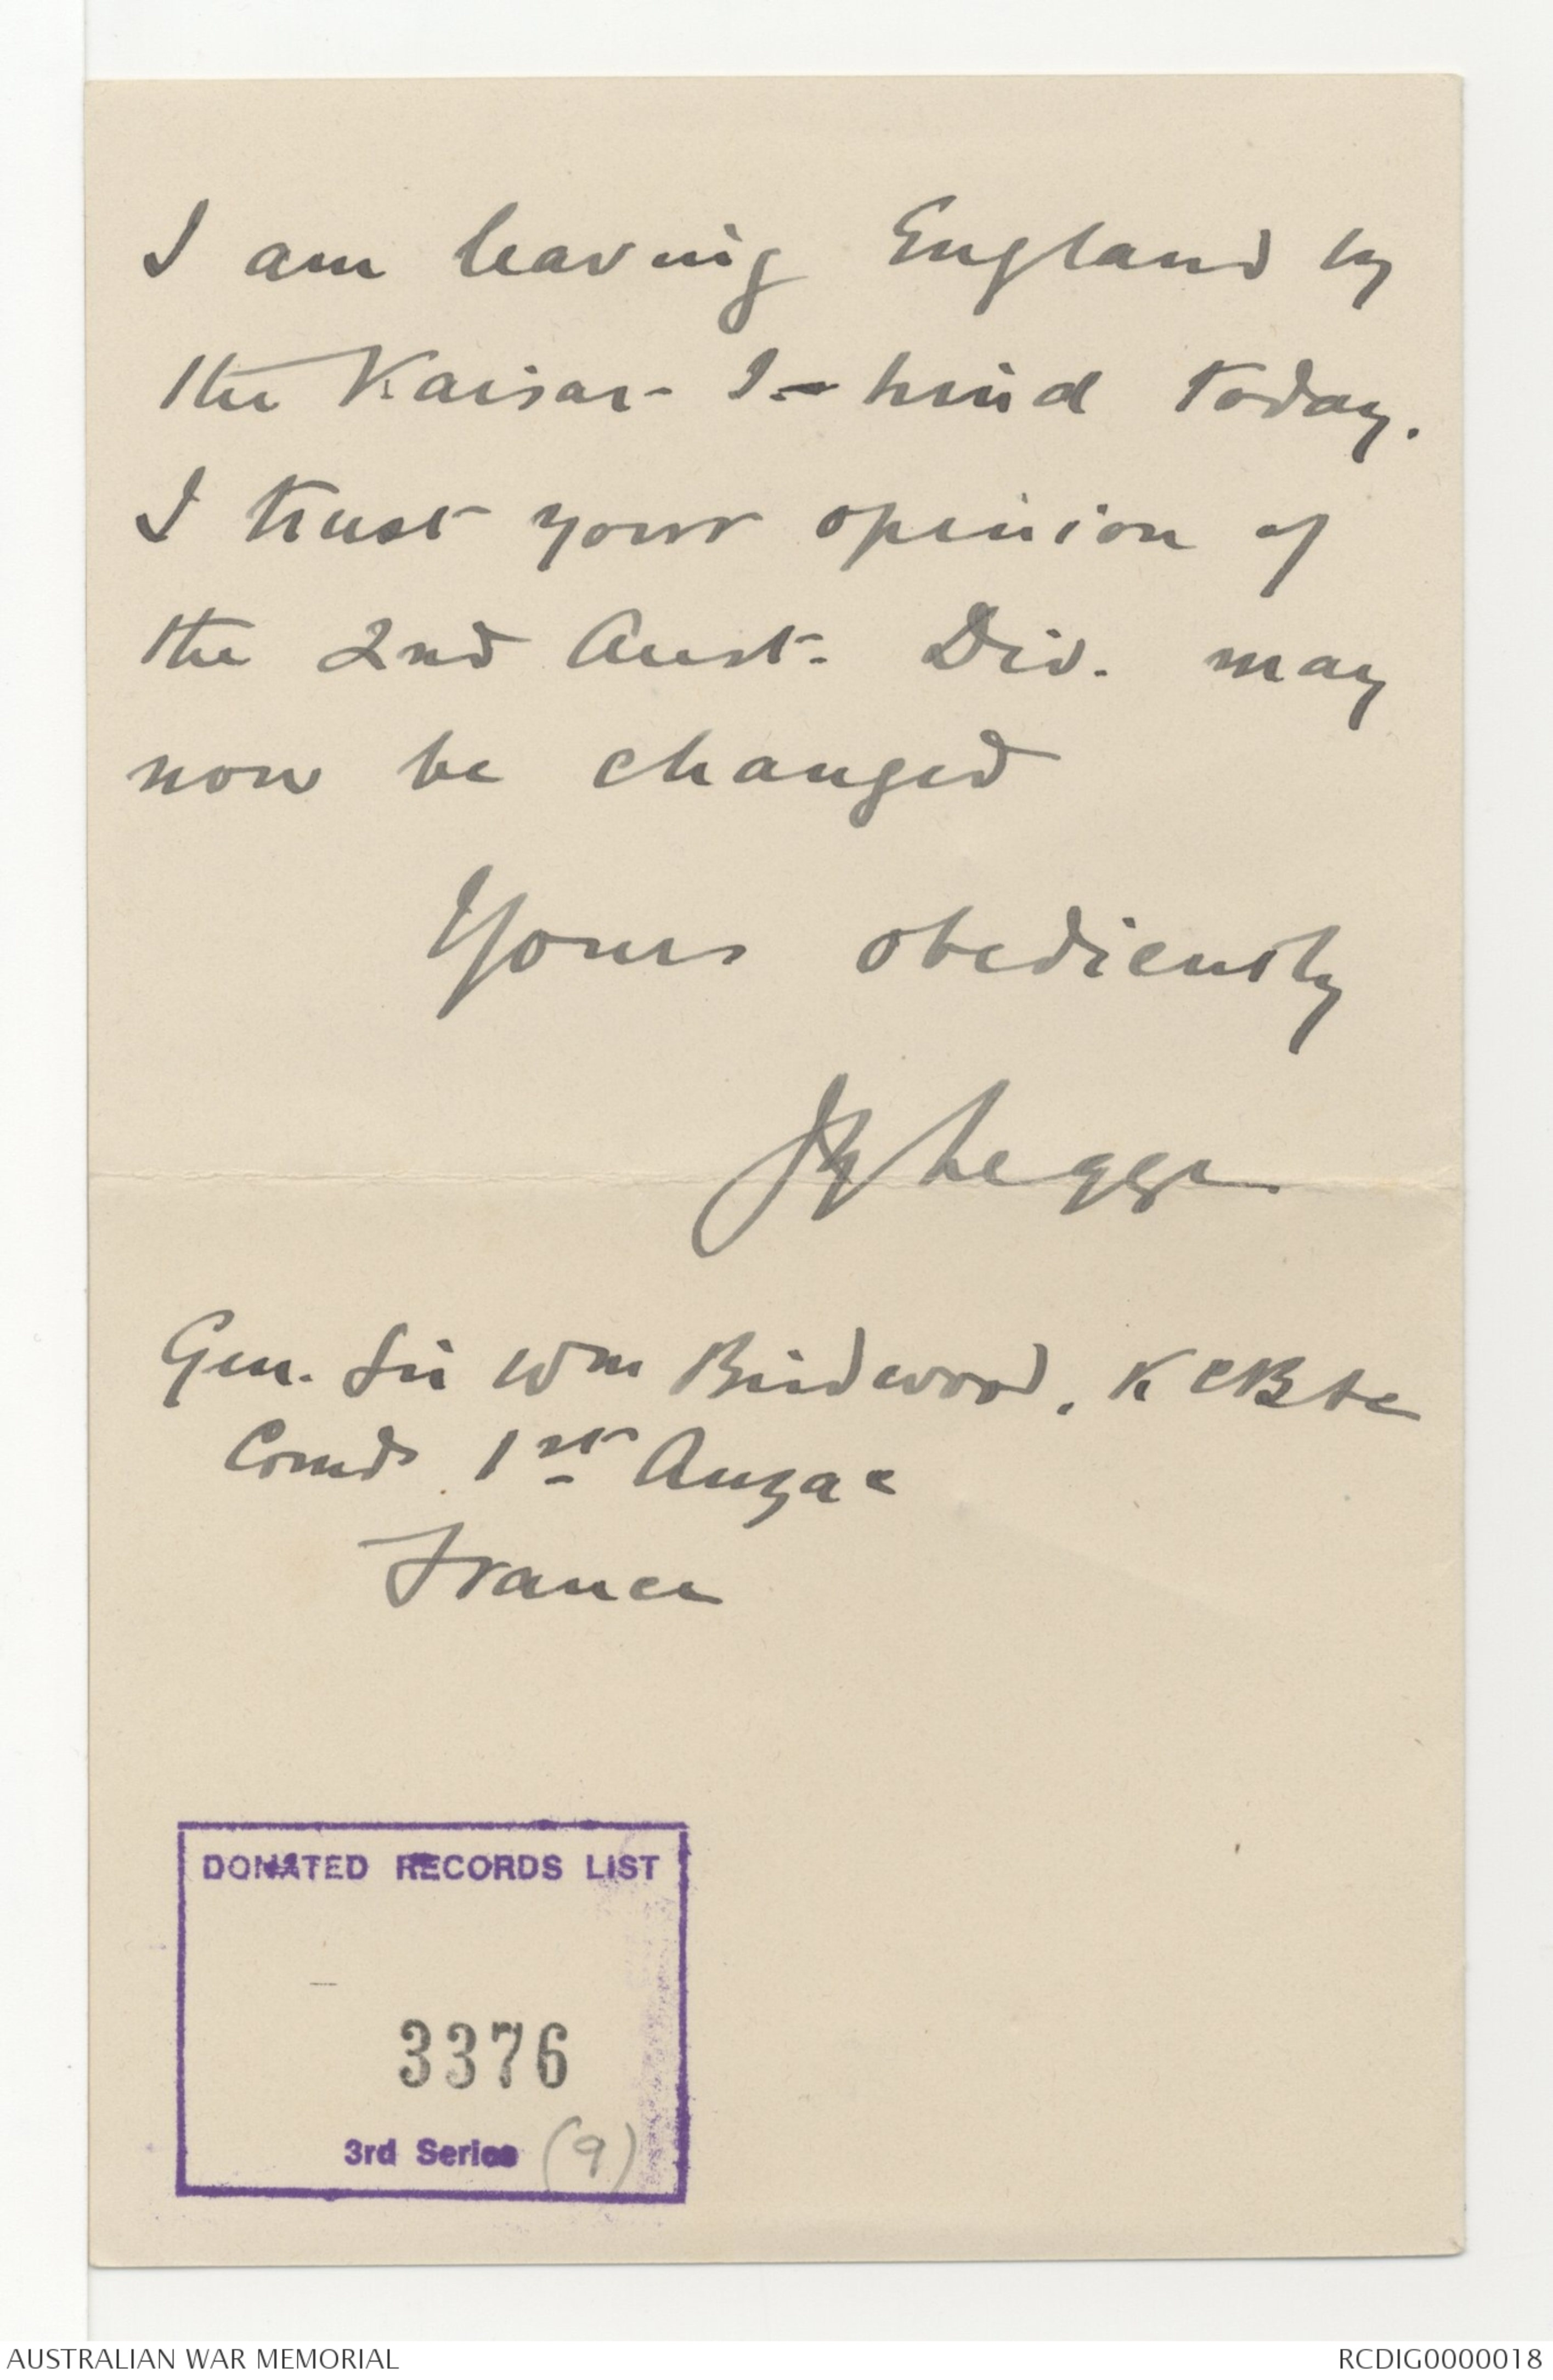 I am leaving England by
the Kaisar-I-hind today.
I trust your opinion of
the 2nd Aust. Div. may
now be changed
Yours obediently
JGLegge
Gen. Sir Wm Birdwood, KCB &c
Comdr 1st Anzac
France
DONATED RECORDS LIST
3376
3rd Series (9)
AUSTRALIAN WAR MEMORIAL
RCDIG0000018